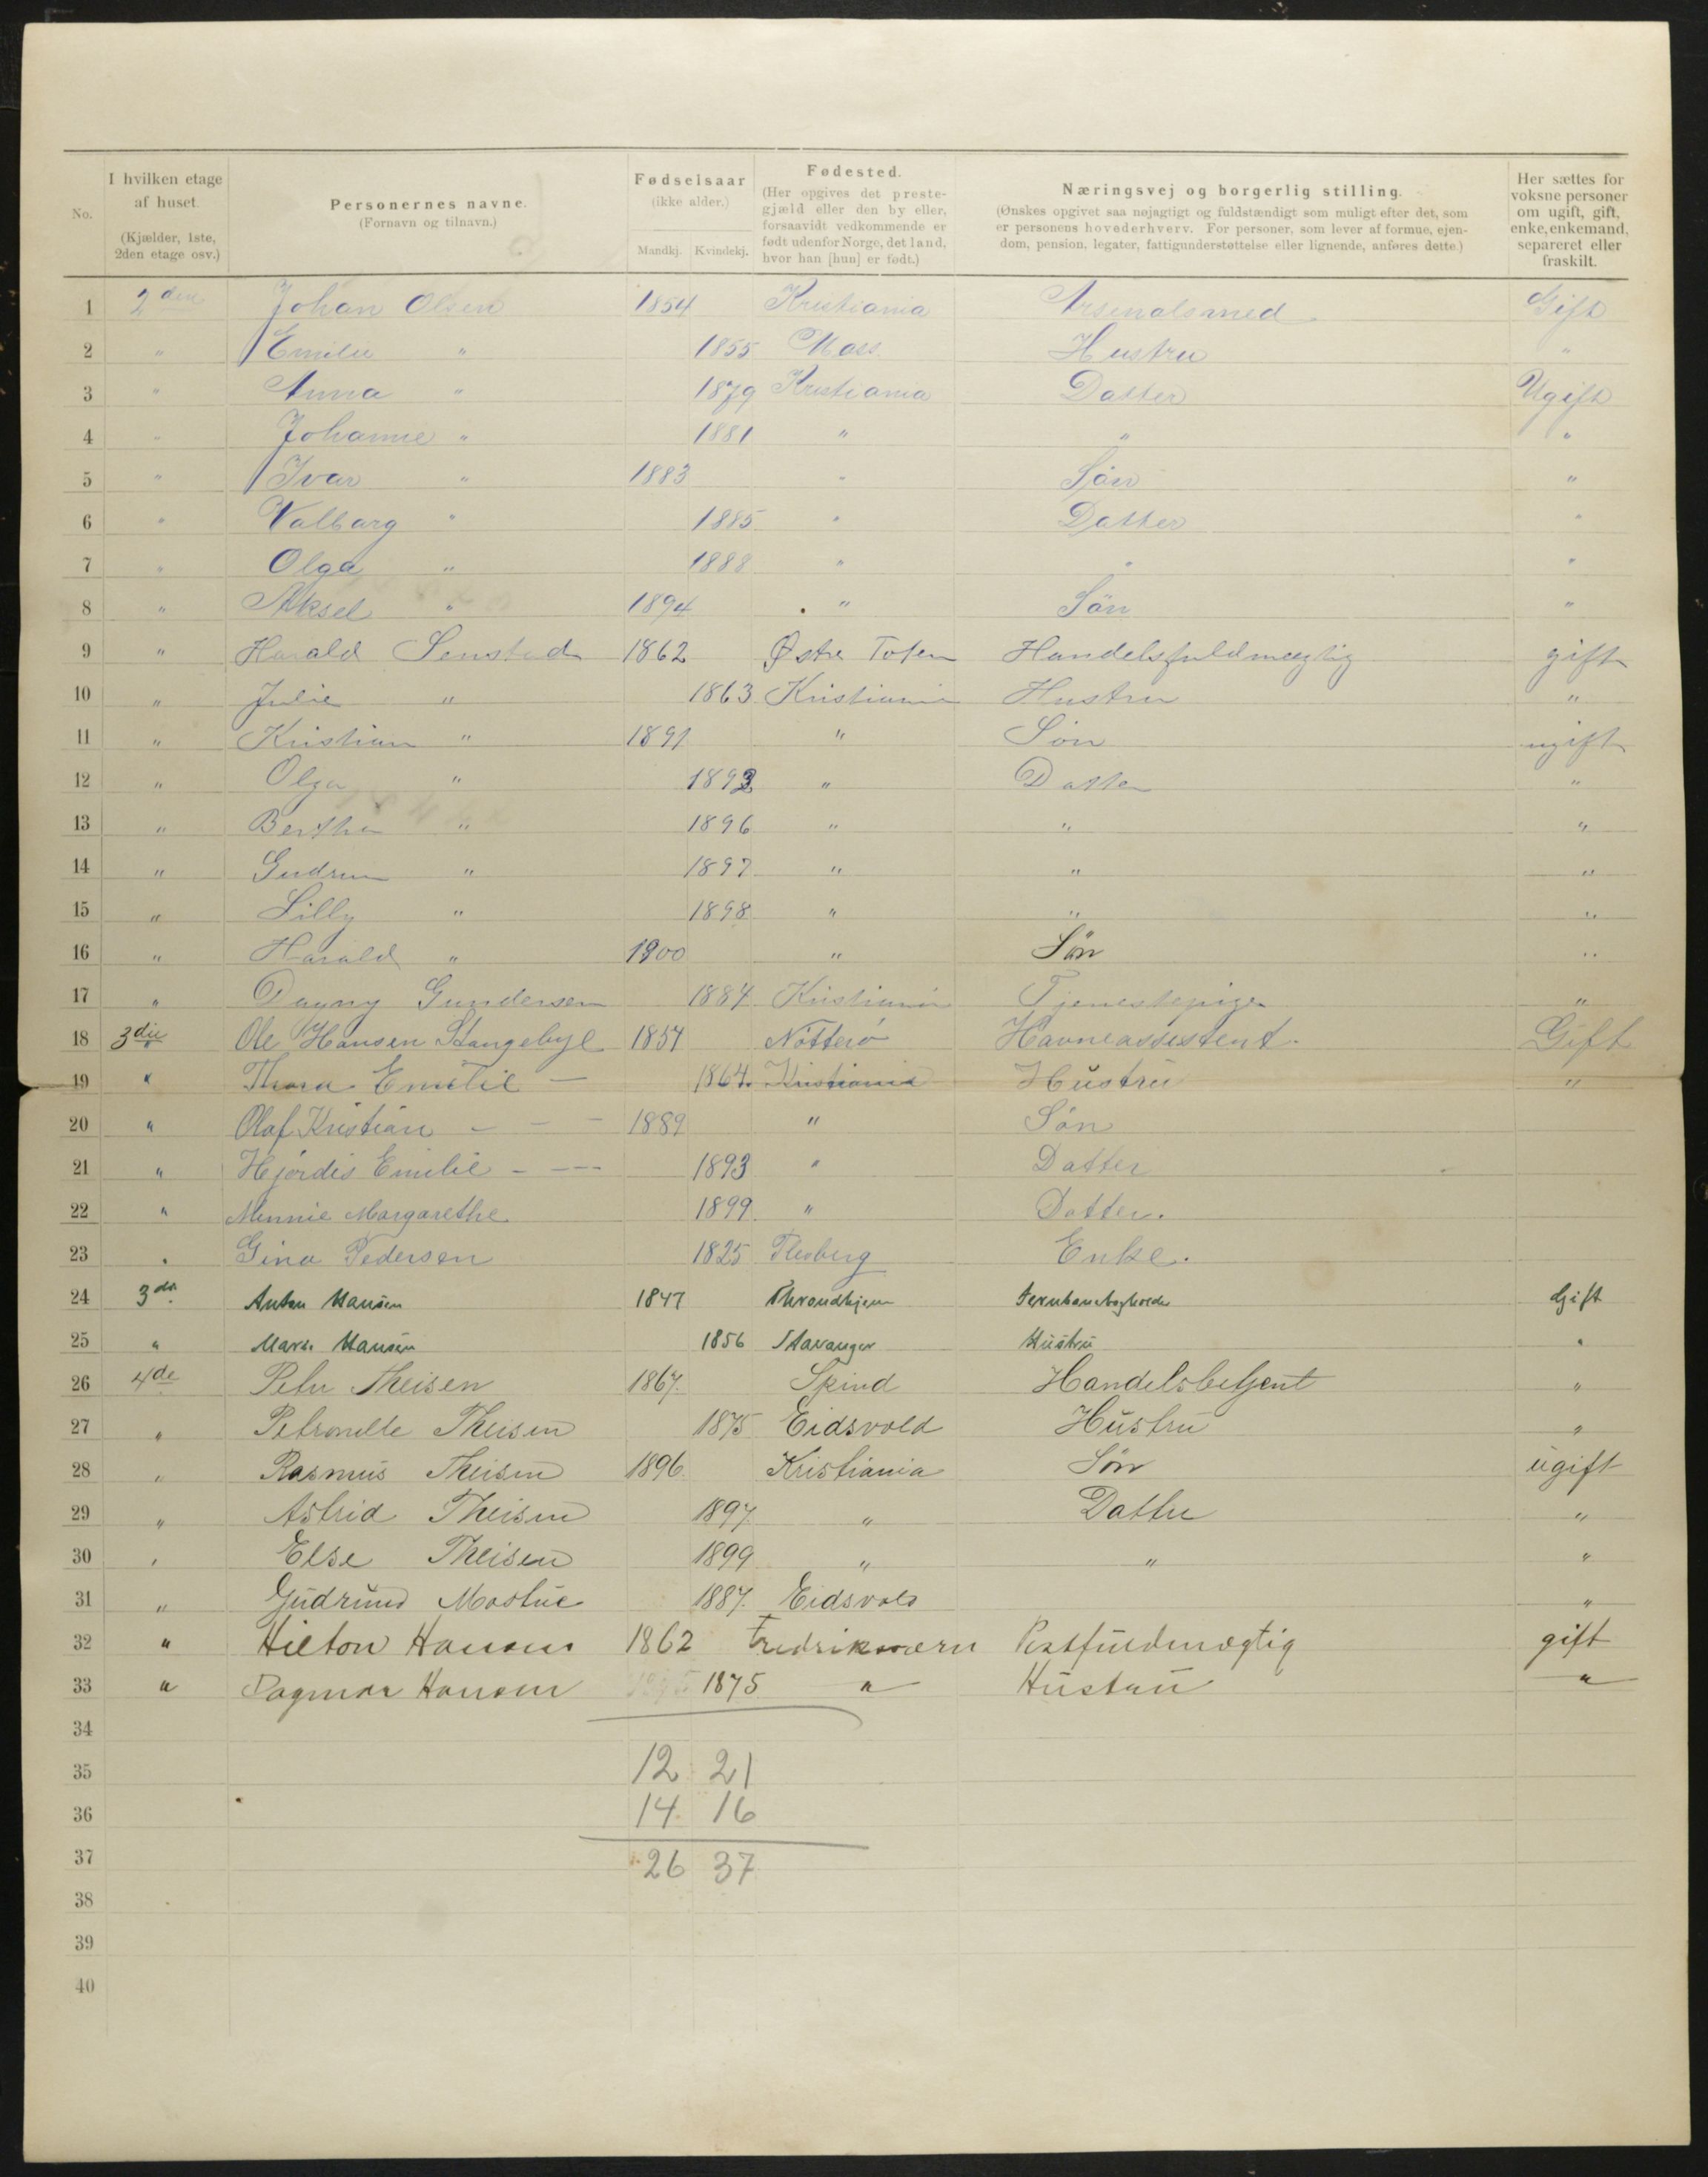 No.
I hvilken etage af huset. (Kjælder, 1ste, 2den etage osv.)
Personernes navne. (Fornavn og tilnavn.)
Fødselsaar (ikke alder.) Mandkj. Kvindekj.
Fødested. (Her opgives det prestegjæld eller den by eller, forsaavidt vedkommende er født udenfor Norge, det land, hvor han [hun] er født.)
Næringsvej og borgerlig stilling. (Ønskes opgivet saa nøjagtigt og fuldstændigt som muligt efter det, som er personens hovederhverv. For personer, som lever af formue, ejendom, pension, legater, fattigunderstøttelse eller lignende, anføres dette.)
Her sættes for voksne personer om ugift, gift, enke, enkemand, separeret eller fraskilt.
1 2den Johan Olsen 1854 Kristiania Arsenalsmed Gift
2 " Emilie " 1855 Moss Hustru "
3 " Anna " 1879 Kristiania Datter Ugift
4 " Johanne " 1881 " " "
5 " Ivar " 1883 " Søn "
6 " Valborg " 1885 " Datter "
7 " Olga " 1888 " " "
8 " Aksel " 1894 " Søn "
9 " Harald Senstad 1862 Østre Toten Handelsfuldmægtig gift
10 " Julie " 1863 Kristiania Hustru "
11 " Kristian " 1891 " Søn ugift
12 " Olga " 1893 " Datter "
13 " Berthe " 1896 " " "
14 " Gudrun " 1897 " " "
15 " Lilly " 1898 " " "
16 " Harald " 1900 " Søn "
17 " Dagny Gundersen 1884 Kristiania Tjenestepige "
18 3die Ole Hansen Stangebye 1857 Nøtterø Havneassistent. Gift
19 " Thora Emilie — 1864. Kristiania Hustru "
20 " Olaf Kristian — — — 1889 " Søn
21 " Hjørdis Emilie — — — 1893 " Datter
22 " Minnie Margarethe 1899 " Datter.
23 " Gina Pedersen 1825 Flesberg Enke.
24 3de Anton Hansen 1847 Throndhjem Jernbanebogholder Gift
25 " Marie Hansen 1856 Stavanger Hustru "
26 4de Peter Theisen 1867. Spind Handelsbetjent "
27 " Petronelle Theisen 1875 Eidsvold Hustru "
28 " Rasmus Theisen 1896 Kristiania Søn ugift
29 " Astrid Theisen 1897. " Datter "
30 " Else Theisen 1899 " " "
31 " Gudrund Mostue 1887. Eidsvold "
32 " Hilton Hansen 1862 Fredriksværn Postfuldmægtig gift
33 " Dagmar Hansen 1875 " Hustru "
34
35 12 21
36 14 16
37 26 37
38
39
40